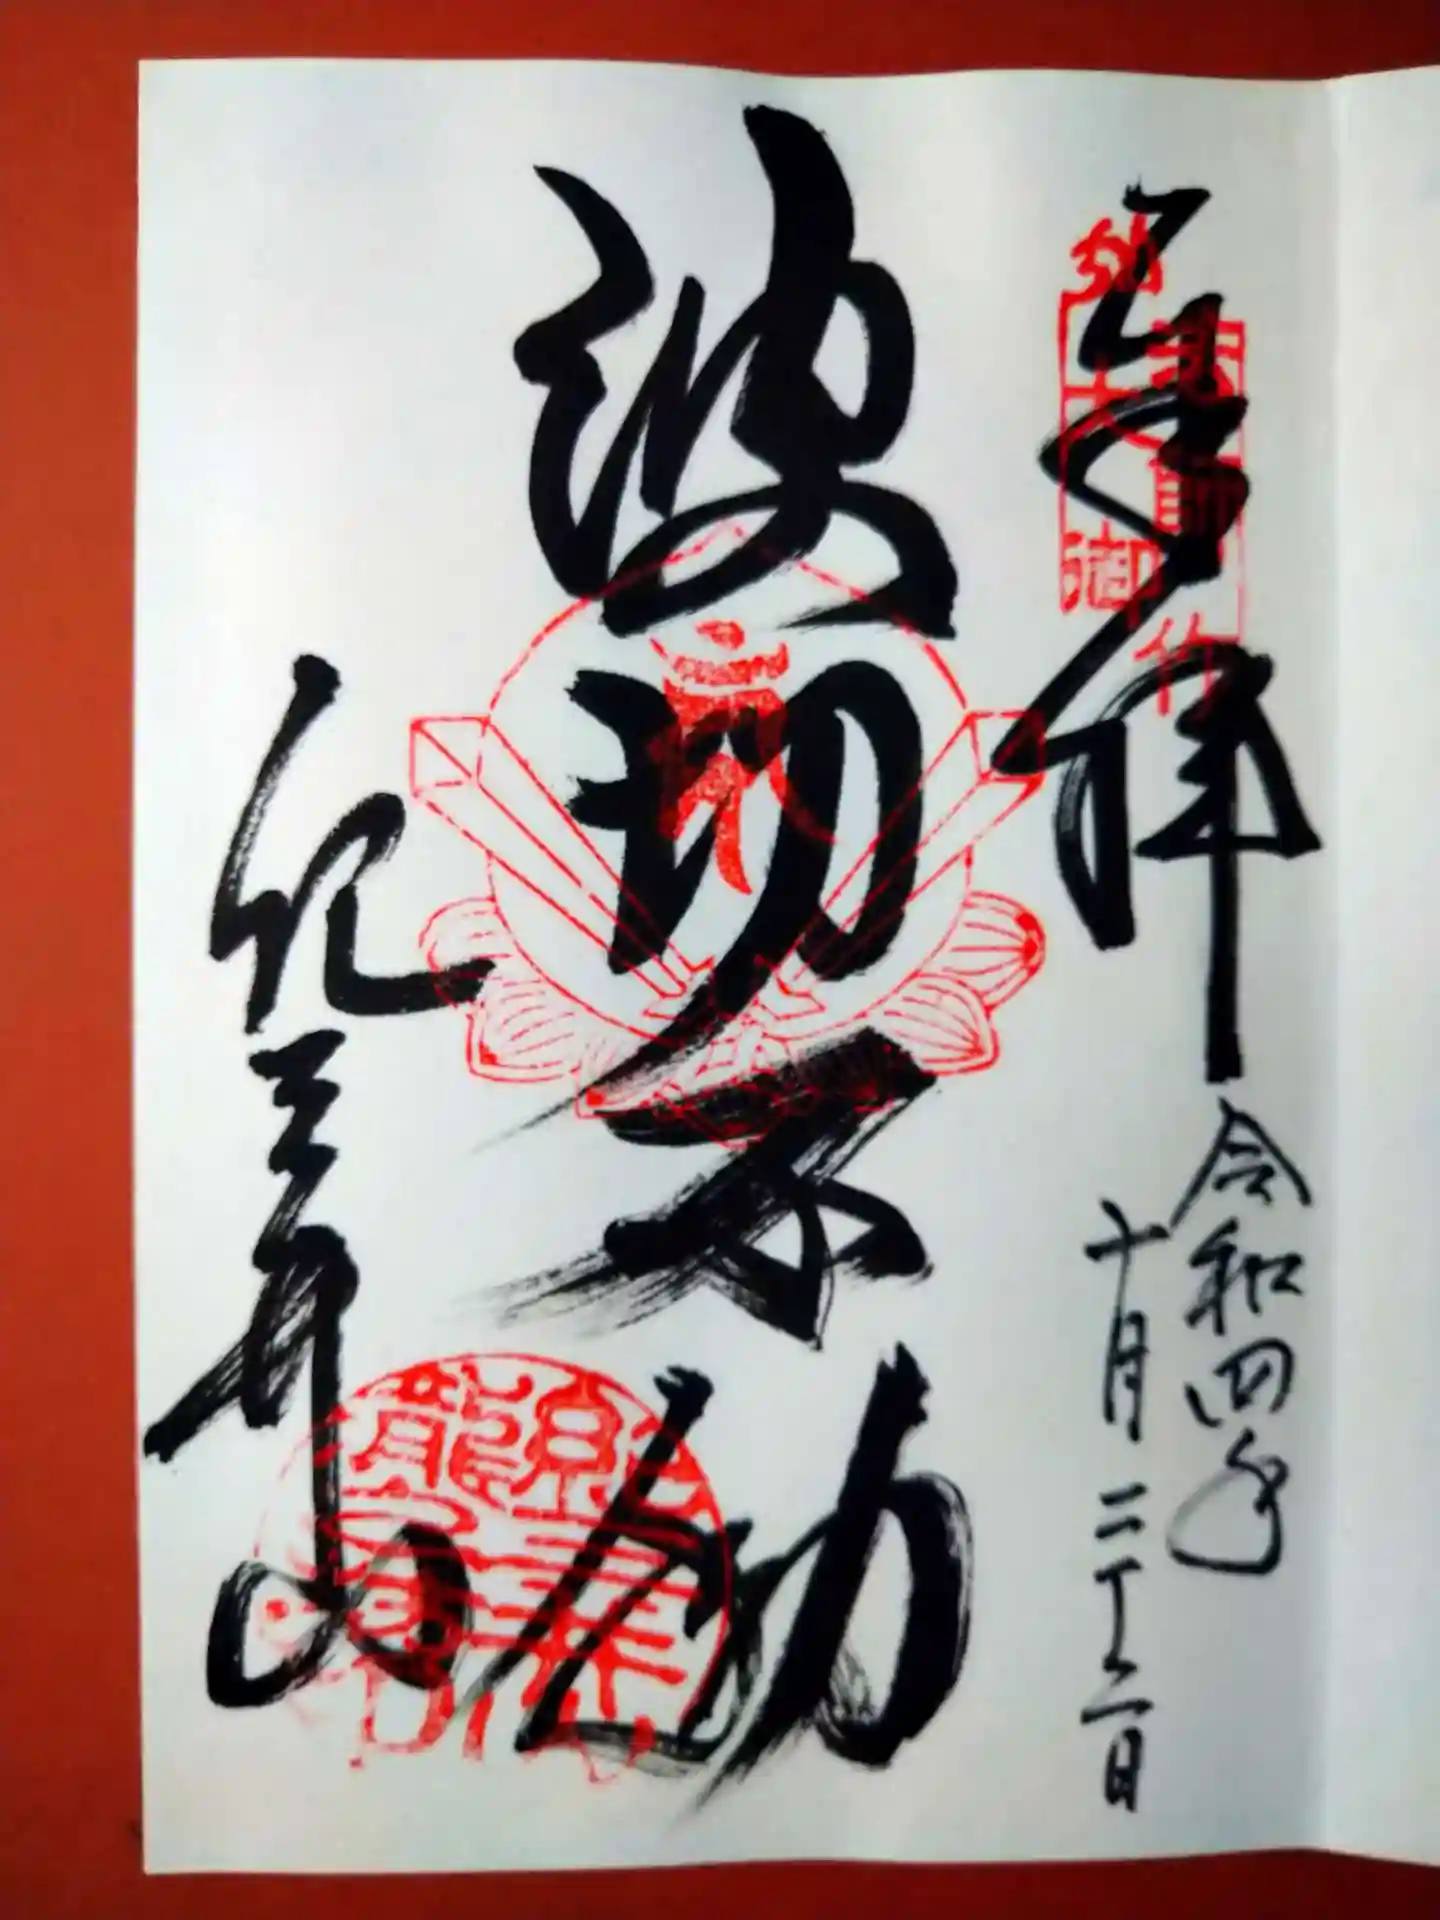 奉拝
弘法大師御作
令和四年
十月二十二日
波切不動
紀三井山